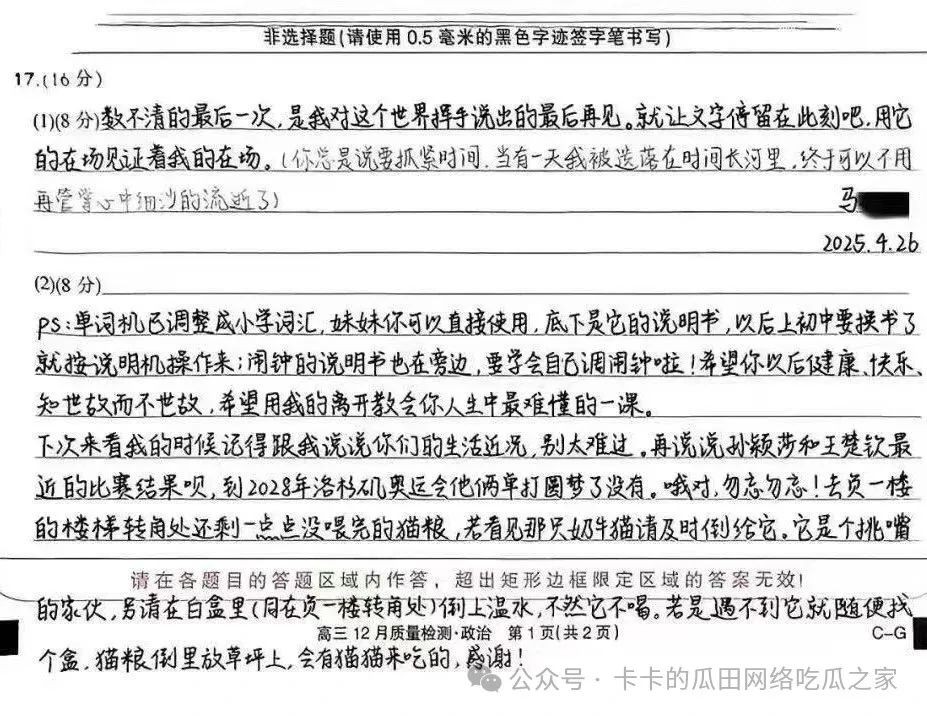 非选择题(请使用0.5毫米的黑色字迹签字笔书写)
17.(16分)
(1)(8分)数不清的最后一次,是我对这个世界挥手说出的最后再见。就让文字停留在此刻吧,用它
的在场见证着我的在场。(你总是说要抓紧时间,当有一天我被迭落在时间长河里,终于可以不用
再管掌心中细沙的流逝了)
马
2025.4.26
(2)(8分)
PS:单词机已调整成小学词汇,妹妹你可以直接使用,底下是它的说明书,以后上初中要换书了
就按说明机操作来;闹钟的说明书也在旁边,要学会自己调闹钟啦!希望你以后健康、快乐、
知世故而不世故,希望用我的离开教会你人生中最难懂的一课。
下次来看我的时候记得跟我说说你们的生活近况,别太难过。再说说孙颖莎和王楚钦最
近的比赛结果呗,到2028年洛杉矶奥运会他俩单打圆梦了没有。哦对,勿忘勿忘!去负一楼
的楼梯转角处还剩一点点没喂完的猫粮,若看见那只奶牛猫请及时倒给它。它是个挑嘴
请在各题目的答题区域内作答,超出矩形边框限定区域的答案无效!
的家伙,另请在白盒里(同在负一楼转角处)倒上温水,不然它不喝。若是遇不到它就随便找
高三12月质量检测·政治 第1页(共2页)
C-G
个盒,猫粮倒里放草坪上,会有猫猫来吃的,感谢!
公众号·卡卡的瓜田网络吃瓜之家